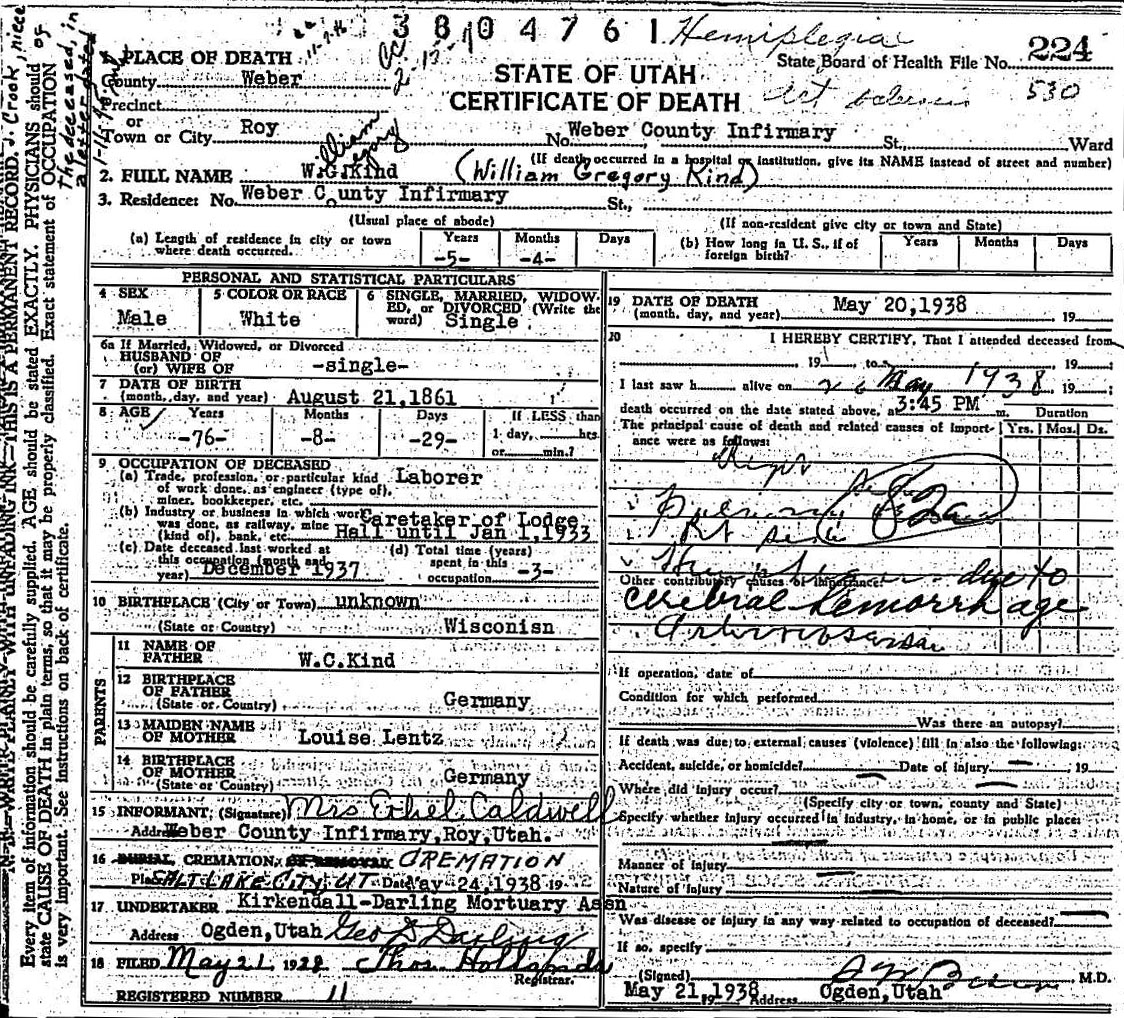 3804761
Hemiplegia
PLACE OF DEATH
State Board of Health File No. 224
County Weber
STATE OF UTAH
Precinct
CERTIFICATE OF DEATH
530
or
Town or City Roy No. Weber County Infirmary St., Ward
(If death occurred in a hospital or institution, give its NAME instead of street and number)
2. FULL NAME W.G.Kind (William Gregory Kind)
3. Residence: No. Weber County Infirmary St.,
(Usual place of abode) (If non-resident give city or town and State)
(a) Length of residence in city or town where death occurred. Years -5- Months -4- Days
(b) How long in U. S., if of foreign birth? Years Months Days
PERSONAL AND STATISTICAL PARTICULARS
4 SEX Male
5 COLOR OR RACE White
6 SINGLE, MARRIED, WIDOWED, or DIVORCED (Write the word) Single
6a If Married, Widowed, or Divorced
HUSBAND OF
(or) WIFE OF -single-
7 DATE OF BIRTH
(month, day, and year) August 21,1861
8 AGE Years -76- Months -8- Days -29- If LESS than
1 day, hrs.
or min.?
9 OCCUPATION OF DECEASED
(a) Trade, profession, or particular kind Laborer
of work done, as engineer (type of),
miner, bookkeeper, etc.
(b) Industry or business in which work Caretaker of Lodge
was done, as railway, mine
(kind of), bank, etc. Hall until Jan 1,1933
(c) Date deceased last worked at
this occupation (month and
year) December 1937
(d) Total time (years)
spent in this
occupation -3-
10 BIRTHPLACE (City or Town) unknown
(State or Country) Wisconisn
PARENTS
11 NAME OF
FATHER W.C.Kind
12 BIRTHPLACE
OF FATHER
(State or Country) Germany
13 MAIDEN NAME
OF MOTHER Louise Lentz
14 BIRTHPLACE
OF MOTHER
(State or Country) Germany
15 INFORMANT, (Signature) Mrs Ethel Caldwell
Address Weber County Infirmary,Roy,Utah.
16 BURIAL, CREMATION, OR REMOVAL CREMATION
Place SALT LAKE CITY, UT Date May 24,1938 19
17 UNDERTAKER Kirkendall-Darling Mortuary Assn
Address Ogden,Utah Geo D Darling
18 FILED May 21 1938
Registrar.
REGISTERED NUMBER 11
19 DATE OF DEATH May 20,1938
(month, day, and year) 19
20 I HEREBY CERTIFY, That I attended deceased from
19 to 19
I last saw h alive on May 1938 19
death occurred on the date stated above, at 3:45 PM m. Duration
The principal cause of death and related causes of importance were as follows: Yrs. Mos. Ds.
due to
Other contributory causes of importance:
cerebral hemorrhage
If operation, date of
Condition for which performed
Was there an autopsy?
If death was due to external causes (violence) fill in also the following:
Accident, suicide, or homicide? Date of injury 19
Where did injury occur?
(Specify city or town, county and State)
Specify whether injury occurred in industry, in home, or in public place:
Manner of injury
Nature of injury
Was disease or injury in any way related to occupation of deceased?
If so, specify
(Signed) M.D.
May 21,1938 Address Ogden,Utah
J. Crook, niece
of
the deceased, in
a letter dated
N. B.—WRITE PLAINLY WITH UNFADING INK—THIS IS A PERMANENT RECORD.
Every item of information should be carefully supplied. AGE should be stated EXACTLY. PHYSICIANS should
state CAUSE OF DEATH in plain terms, so that it may be properly classified. Exact statement of OCCUPATION
is very important. See instructions on back of certificate.